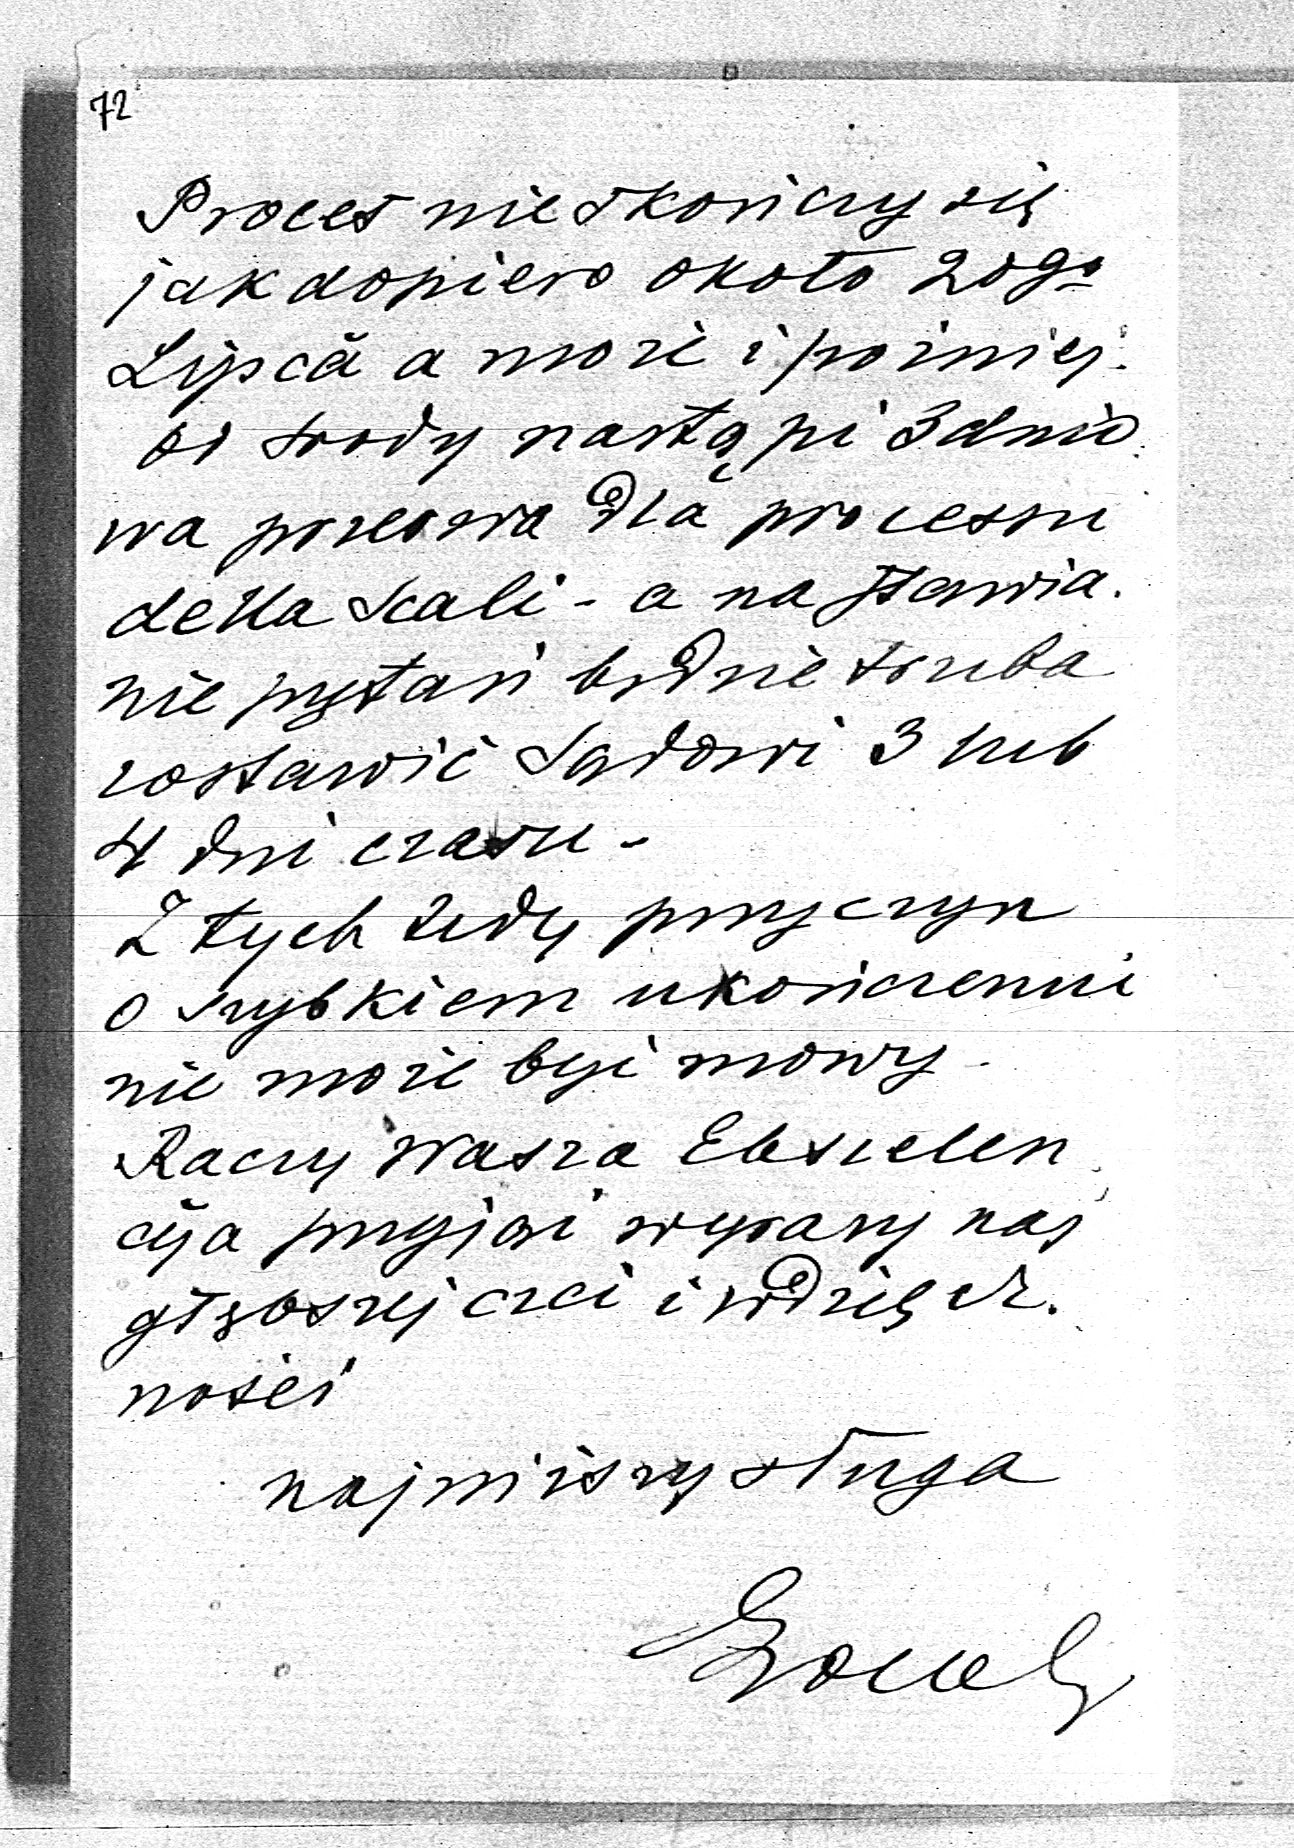 72
Proces nie skończy się
jak dopiero około 20go
Lipca a może i poźniej.
od środy nastąpi 3 dnio
wa przerwa dla procesu
della Scali - a na stawia.
nie pytań będzie trzeba
zostawić Sądowi 3 lub
4 dni czasu -
Z tych tedy przyczyn
o szybkiem ukończeniu
nie może być mowy -
Raczy Wasza Ekscelen
cyja przyjąć wyrazy naj
głębszej czci i wdzięcz.
ności
najniższy sługa